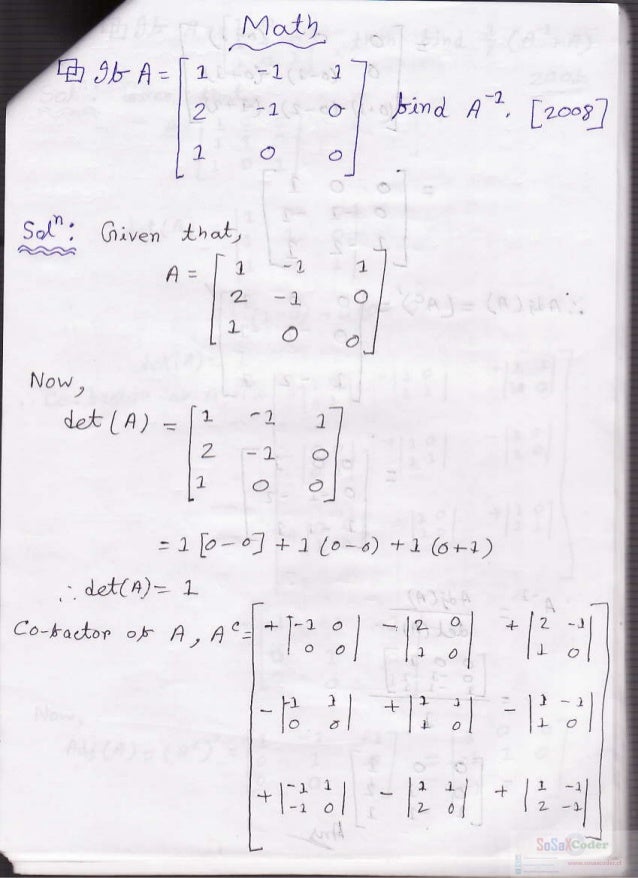 Math
If A = [1 -1 1
2 -1 0 find A⁻¹. [2008]
1 0 0]
Solⁿ: Given that,
A = [1 -1 1
2 -1 0
1 0 0]
Now,
det (A) = [1 -1 1
2 -1 0
1 0 0]
= 1 [0-0] + 1 (0-0) + 1 (0+1)
∴ det(A) = 1
Co-factor of A, Aᶜ = [+ |-1 0| - |2 0| + |2 -1|
|0 0| |1 0| |1 0|
- |-1 1| + |1 1| - |1 -1|
|0 0| |1 0| |1 0|
+ |-1 1| - |1 1| + |1 -1|
|-1 0| |2 0| |2 -1|]
SoSaXCoder